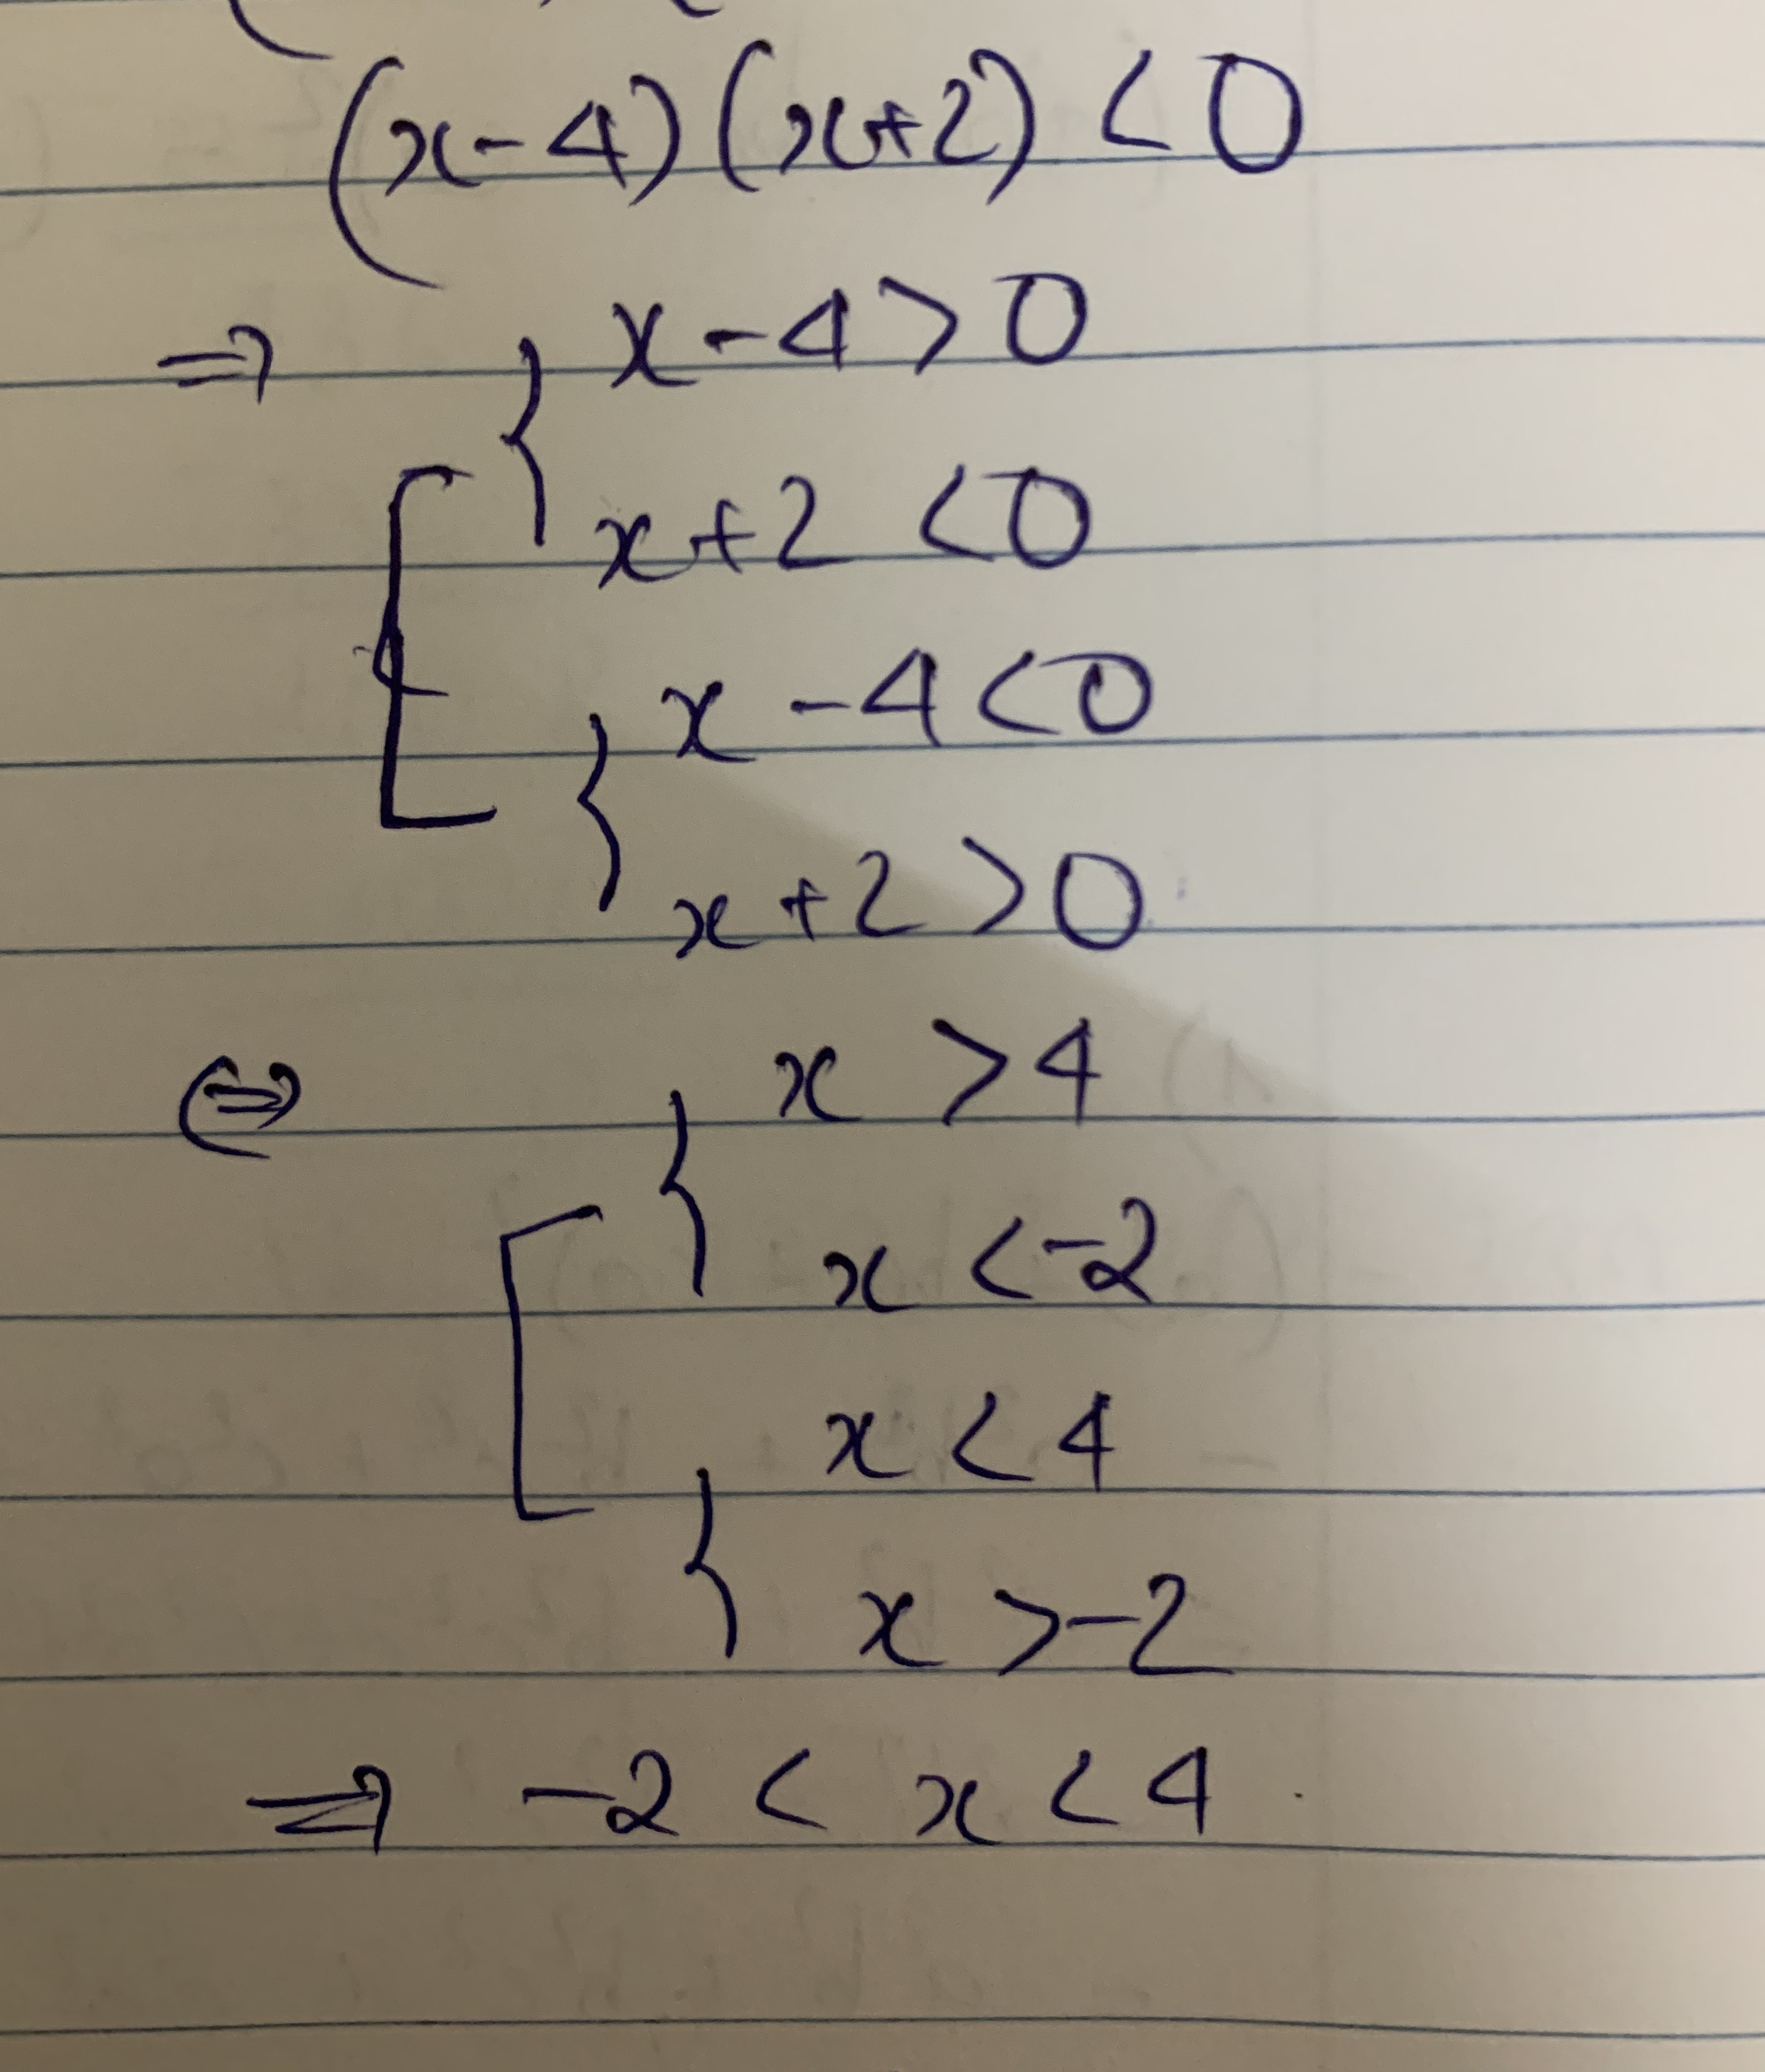 (x-4)(x+2) < 0
⇒ { x-4 > 0
[ { x+2 < 0
{ x-4 < 0
{ x+2 > 0
⇔ { x > 4
[ { x < -2
{ x < 4
{ x > -2
⇒ -2 < x < 4.